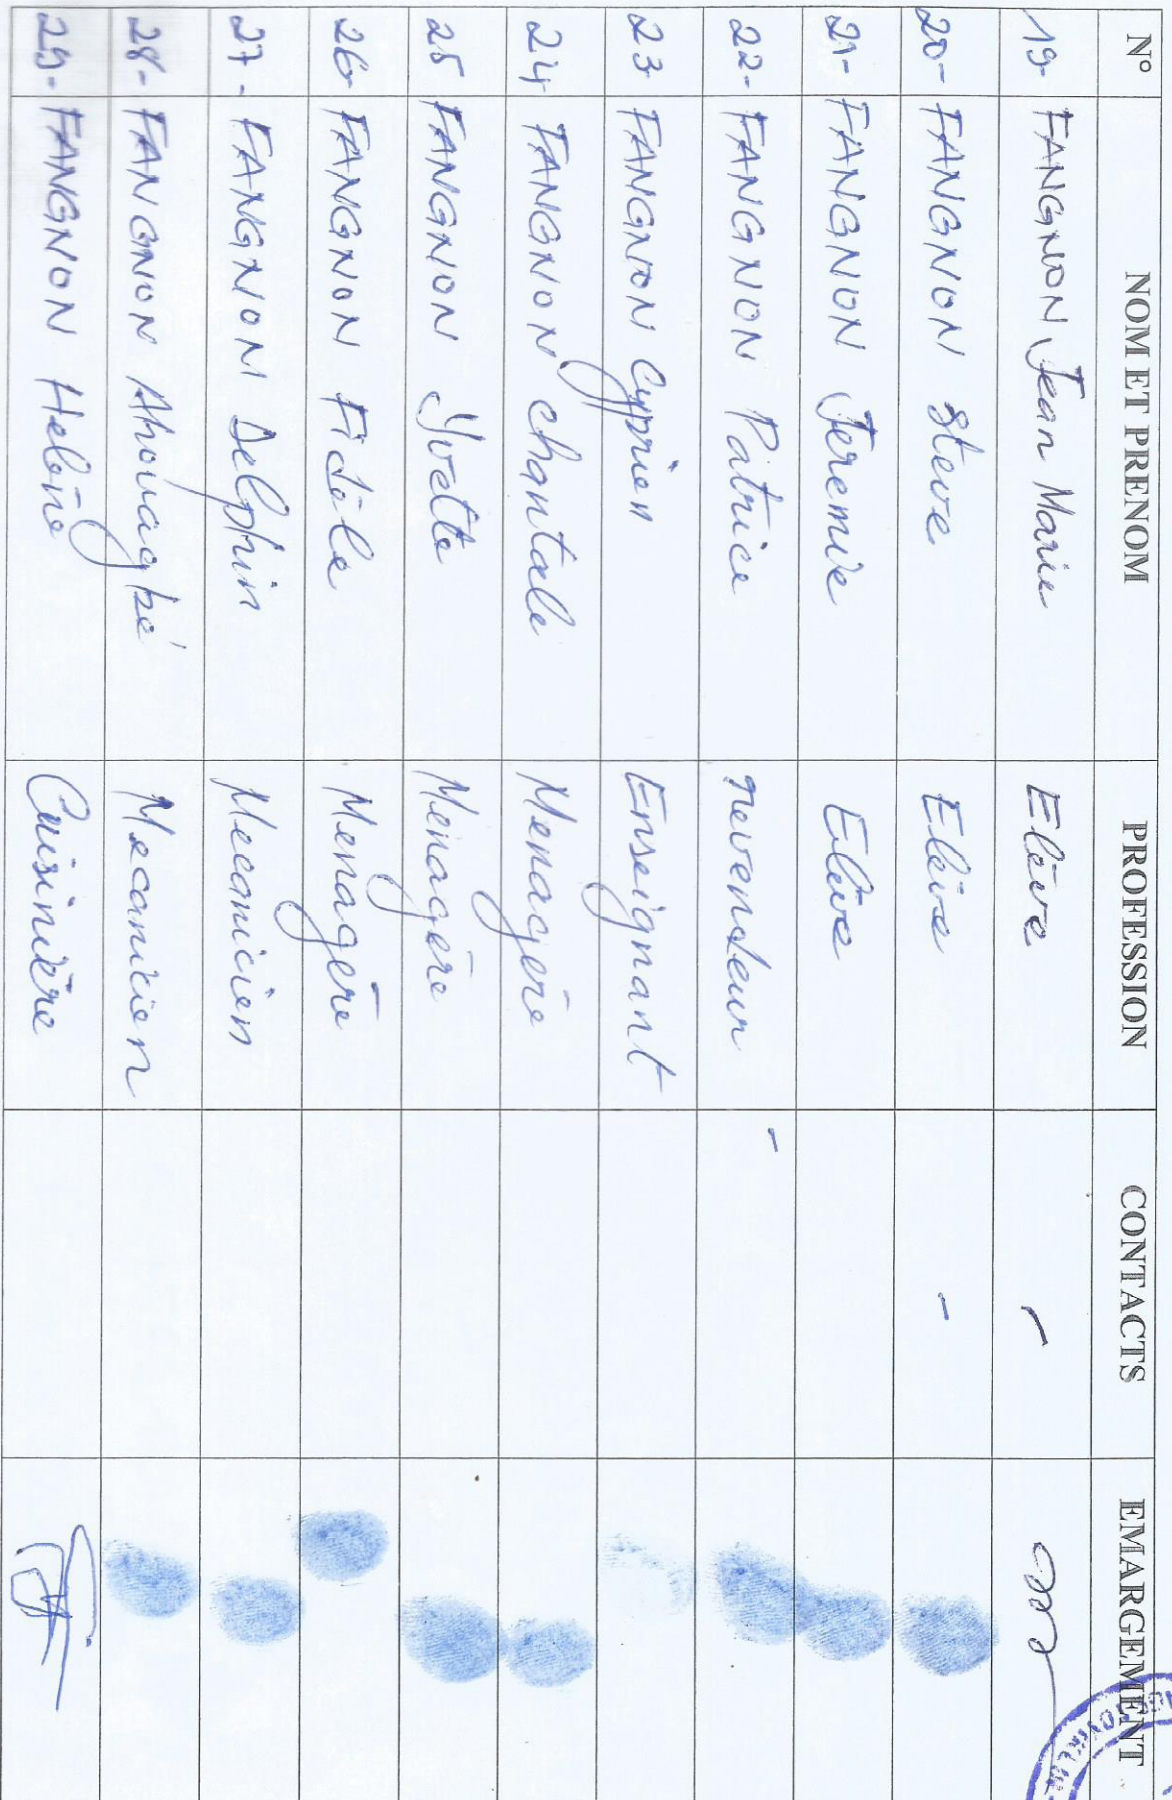 N° NOM ET PRENOM PROFESSION CONTACTS EMARGEMENT
19- FANGNON Jean Marie Elève -
20- FANGNON Steve Elève -
21- FANGNON Jeremie Elève
22- FANGNON Patrice revendeur -
23 FANGNON Cyprien Enseignant
24 FANGNON Chantale Menagère
25 FANGNON Yvette Menagère
26- FANGNON Fidèle Menagère
27- FANGNON Delphin Mecanicien
28- FANGNON Ahouagbé Mecanicien
29- FANGNON Hélène Cuisinière